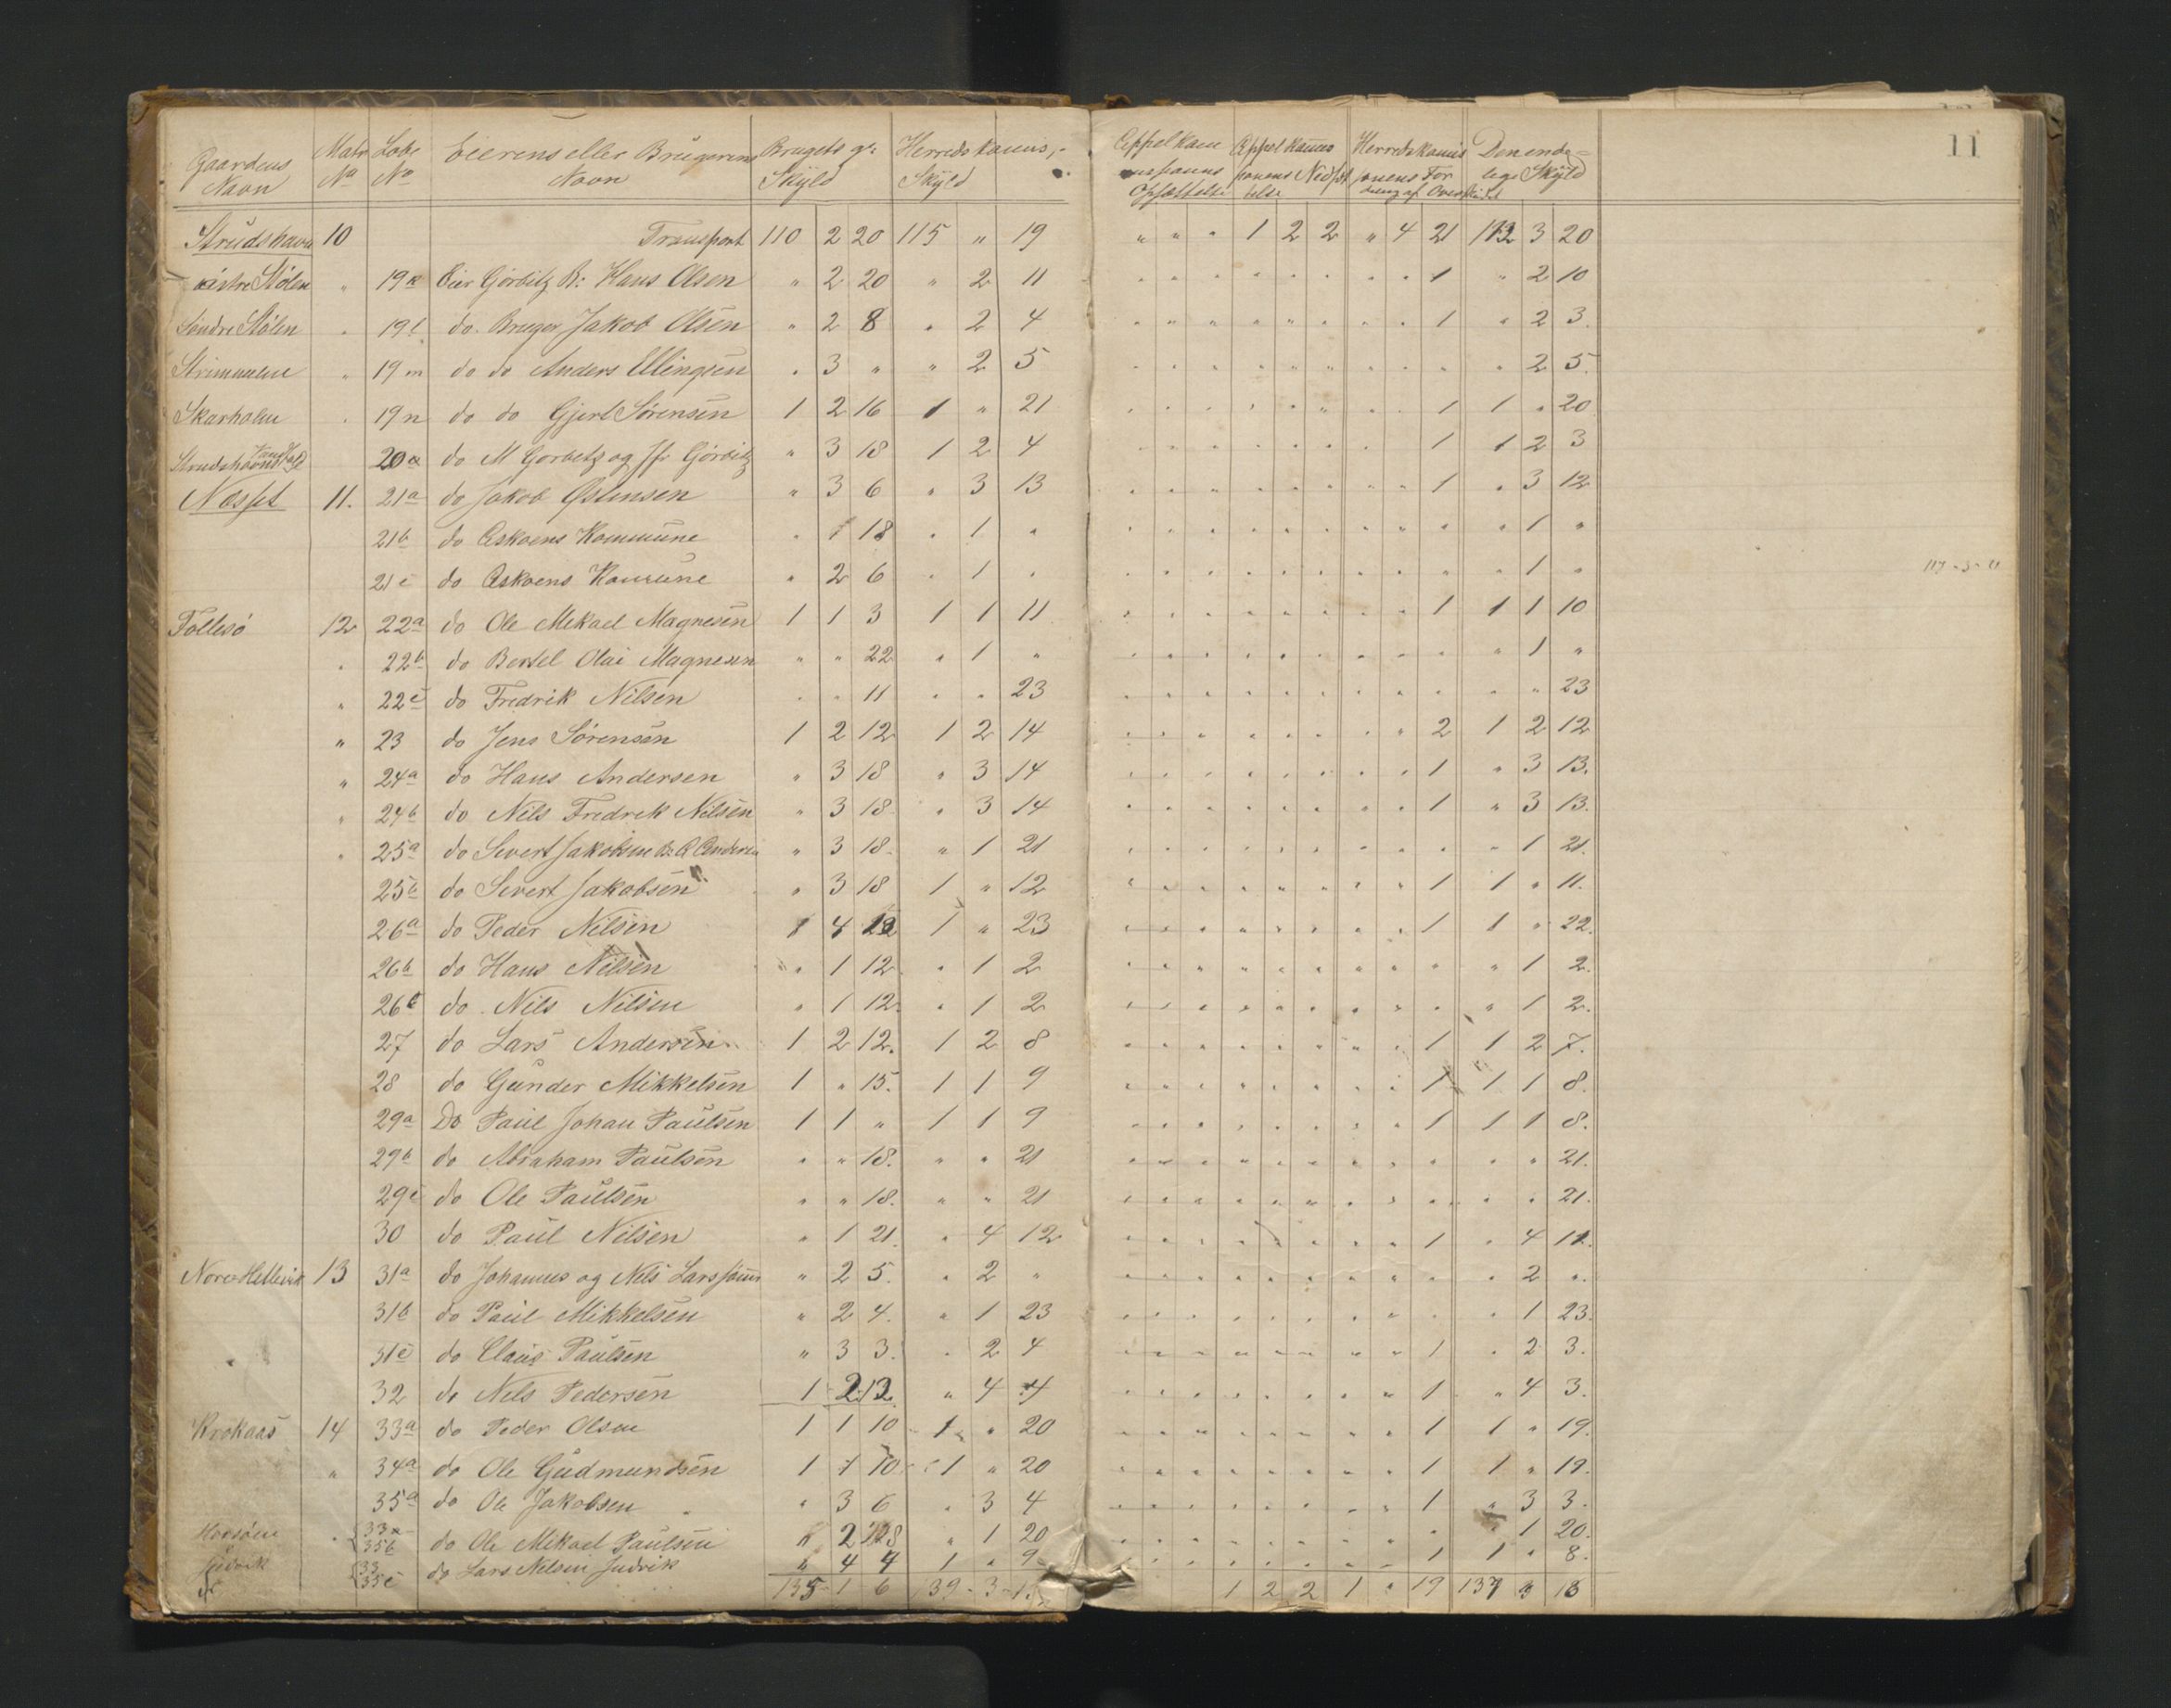 11
Gaardens Navn | Matr No | Løbe No | Eierens eller Brugerens Navn | Brugets gl: Skyld | Herredskomis.- Skyld | Appelkommissionens Opsættelse | Appelkommissionens Nedsættelse | Herredskomissionens Fordeling af Overskudet | Den endelige Skyld
Strudshavn 10 Transport 110 2 20 115 " 19 " " " 1 2 2 " 4 21 3 20
østre Stølen " 19k Eier Görbitz B: Hans Olsen " 2 20 " 2 11 1 " 2 10
Söndre Stølen " 19l do. Bruger Jakob Olsen " 2 8 " 2 4 1 " 2 3.
" 19m do do Anders Ellingsen " 3 " " 2 5 " 2 5.
Skarholm " 19n do do Gjert Sörensen 1 2 16 1 " 21 1 1 " 20
Strudshavns Vandfald 20a do M Gorbitz og Fr Görbitz " 3 18 1 2 4 1 1 2 3
Næsset 11. 21a do Jakob Østensen " 3 6 " 3 13 1 " 3 12
21b do Askøens Kommune " 1 18 " 1 " " 1 "
21c do Askøens " 2 6 " 1 " " 1 "
117-3-11
Follesö 12 22a do Ole Mekael Magnesen 1 1 3 1 1 11 1 1 1 10
" 22b do Bertel Olai Magnesen " " 22 " 1 " " 1 "
" 22c do Fredrik Nilsen " " 11 " " 23 " " 23
" 23 do Jens Sörensen 1 2 12 1 2 14 2 1 2 12
" 24a do Hans Andersen " 3 18 " 3 14 1 " 3 13.
" 24b do Nils Fredrek Nilsen " 3 18 " 3 14 1 " 3 13.
" 25a do Sivert " 3 18 " 1 21 " 1 21.
25b do Sivert Jakobsen " 3 18 1 " 12 1 1 " 11.
26a do Peder Nilsen 1 " 23 1 1 " 22.
26b do Hans Nilsen " 1 12 " 1 2 " 1 2.
26c do Nils Nilsen " 1 12. " 1 2 " 1 2.
27 do Lars Andersen 1 2 12. 1 2 8 1 1 2 7.
28 do Gunder Mikkelsen 1 " 15. 1 1 9 1 1 1 8.
29a Do Paul Johan Paulsen 1 1 " 1 1 9 1 1 1 8.
29b do Abraham Paulsen " " 18. " " 21 " " 21.
29c do Ole Paulsen " " 18. " " 21 " " 21.
30 do Paul Nilsen " 1 21. " 4 12 1 " 4 11.
Nore Hellevik 13 31a do Johannes og Nils " 2 5. " 2 " " 2 ".
31b do Paul Mikkelsen " 2 4. " 1 23 " 1 23.
31c do Claus Paulsen " 3 3. " 2 4 1 " 2 3.
32 do Nels Pedersen 1 2 12 " 4 4 1 " 4 3.
Krokaas 14 33a do Peder Olsen 1 1 10 1 " 20 1 1 " 19.
" 34a do Ole Gudmundsen 1 1 10 1 " 20 1 1 " 19.
35a do Ole Jakobsen " 3 6 " 3 4 1 " 3 3.
35b do Ole Mikael Paulsen " 2 " 1 20 " 1 20.
35c do Lars Nelsen Judvik " 4 4 1 " 9 1 1 " 8.
135 1 6 139-3- 1 2 2 1 " 19 137 3 18